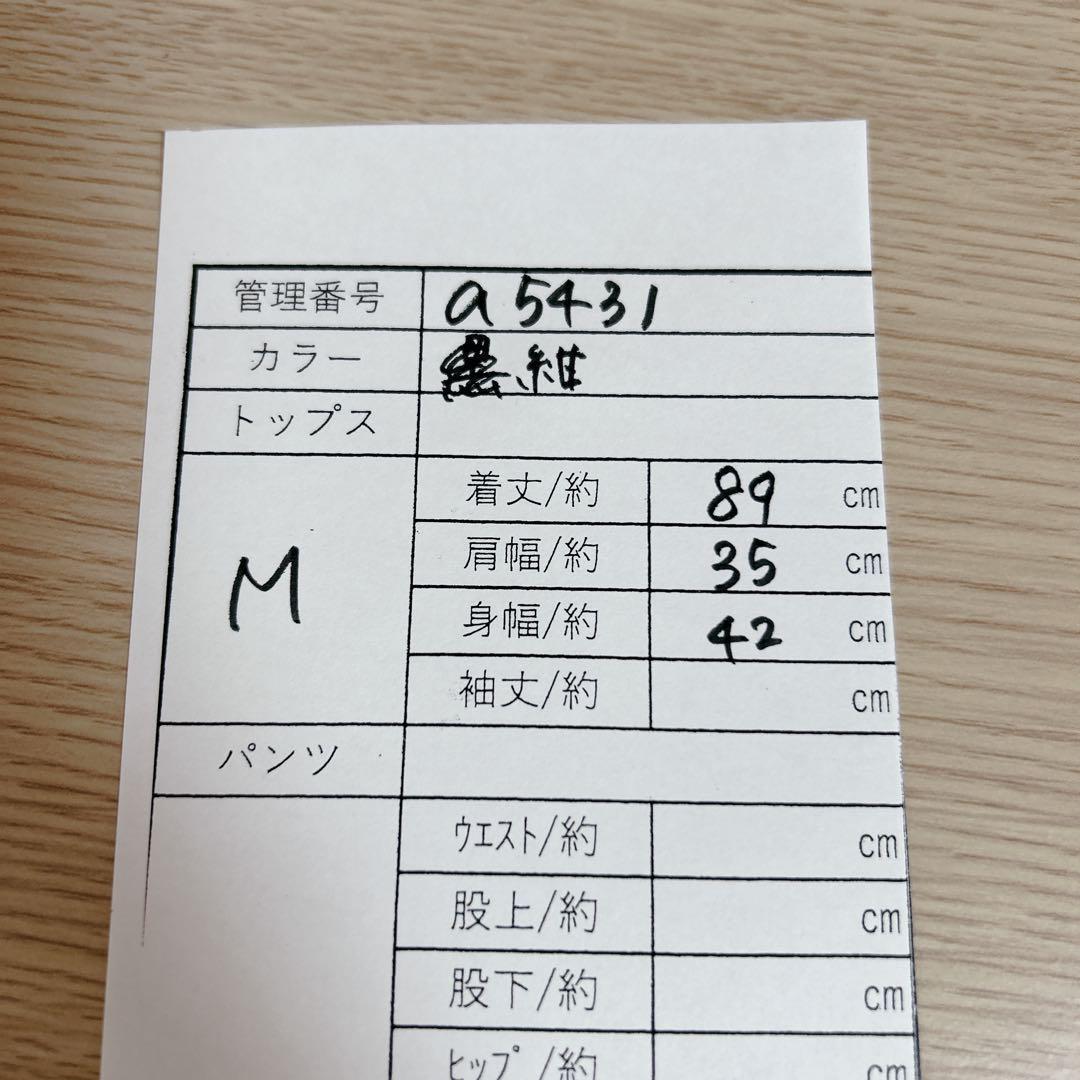 管理番号 a5431
カラー 紺
トップス
M
着丈/約 89 cm
肩幅/約 35 cm
身幅/約 42 cm
袖丈/約 cm
パンツ
ウエスト/約 cm
股上/約 cm
股下/約 cm
ヒップ/約 cm